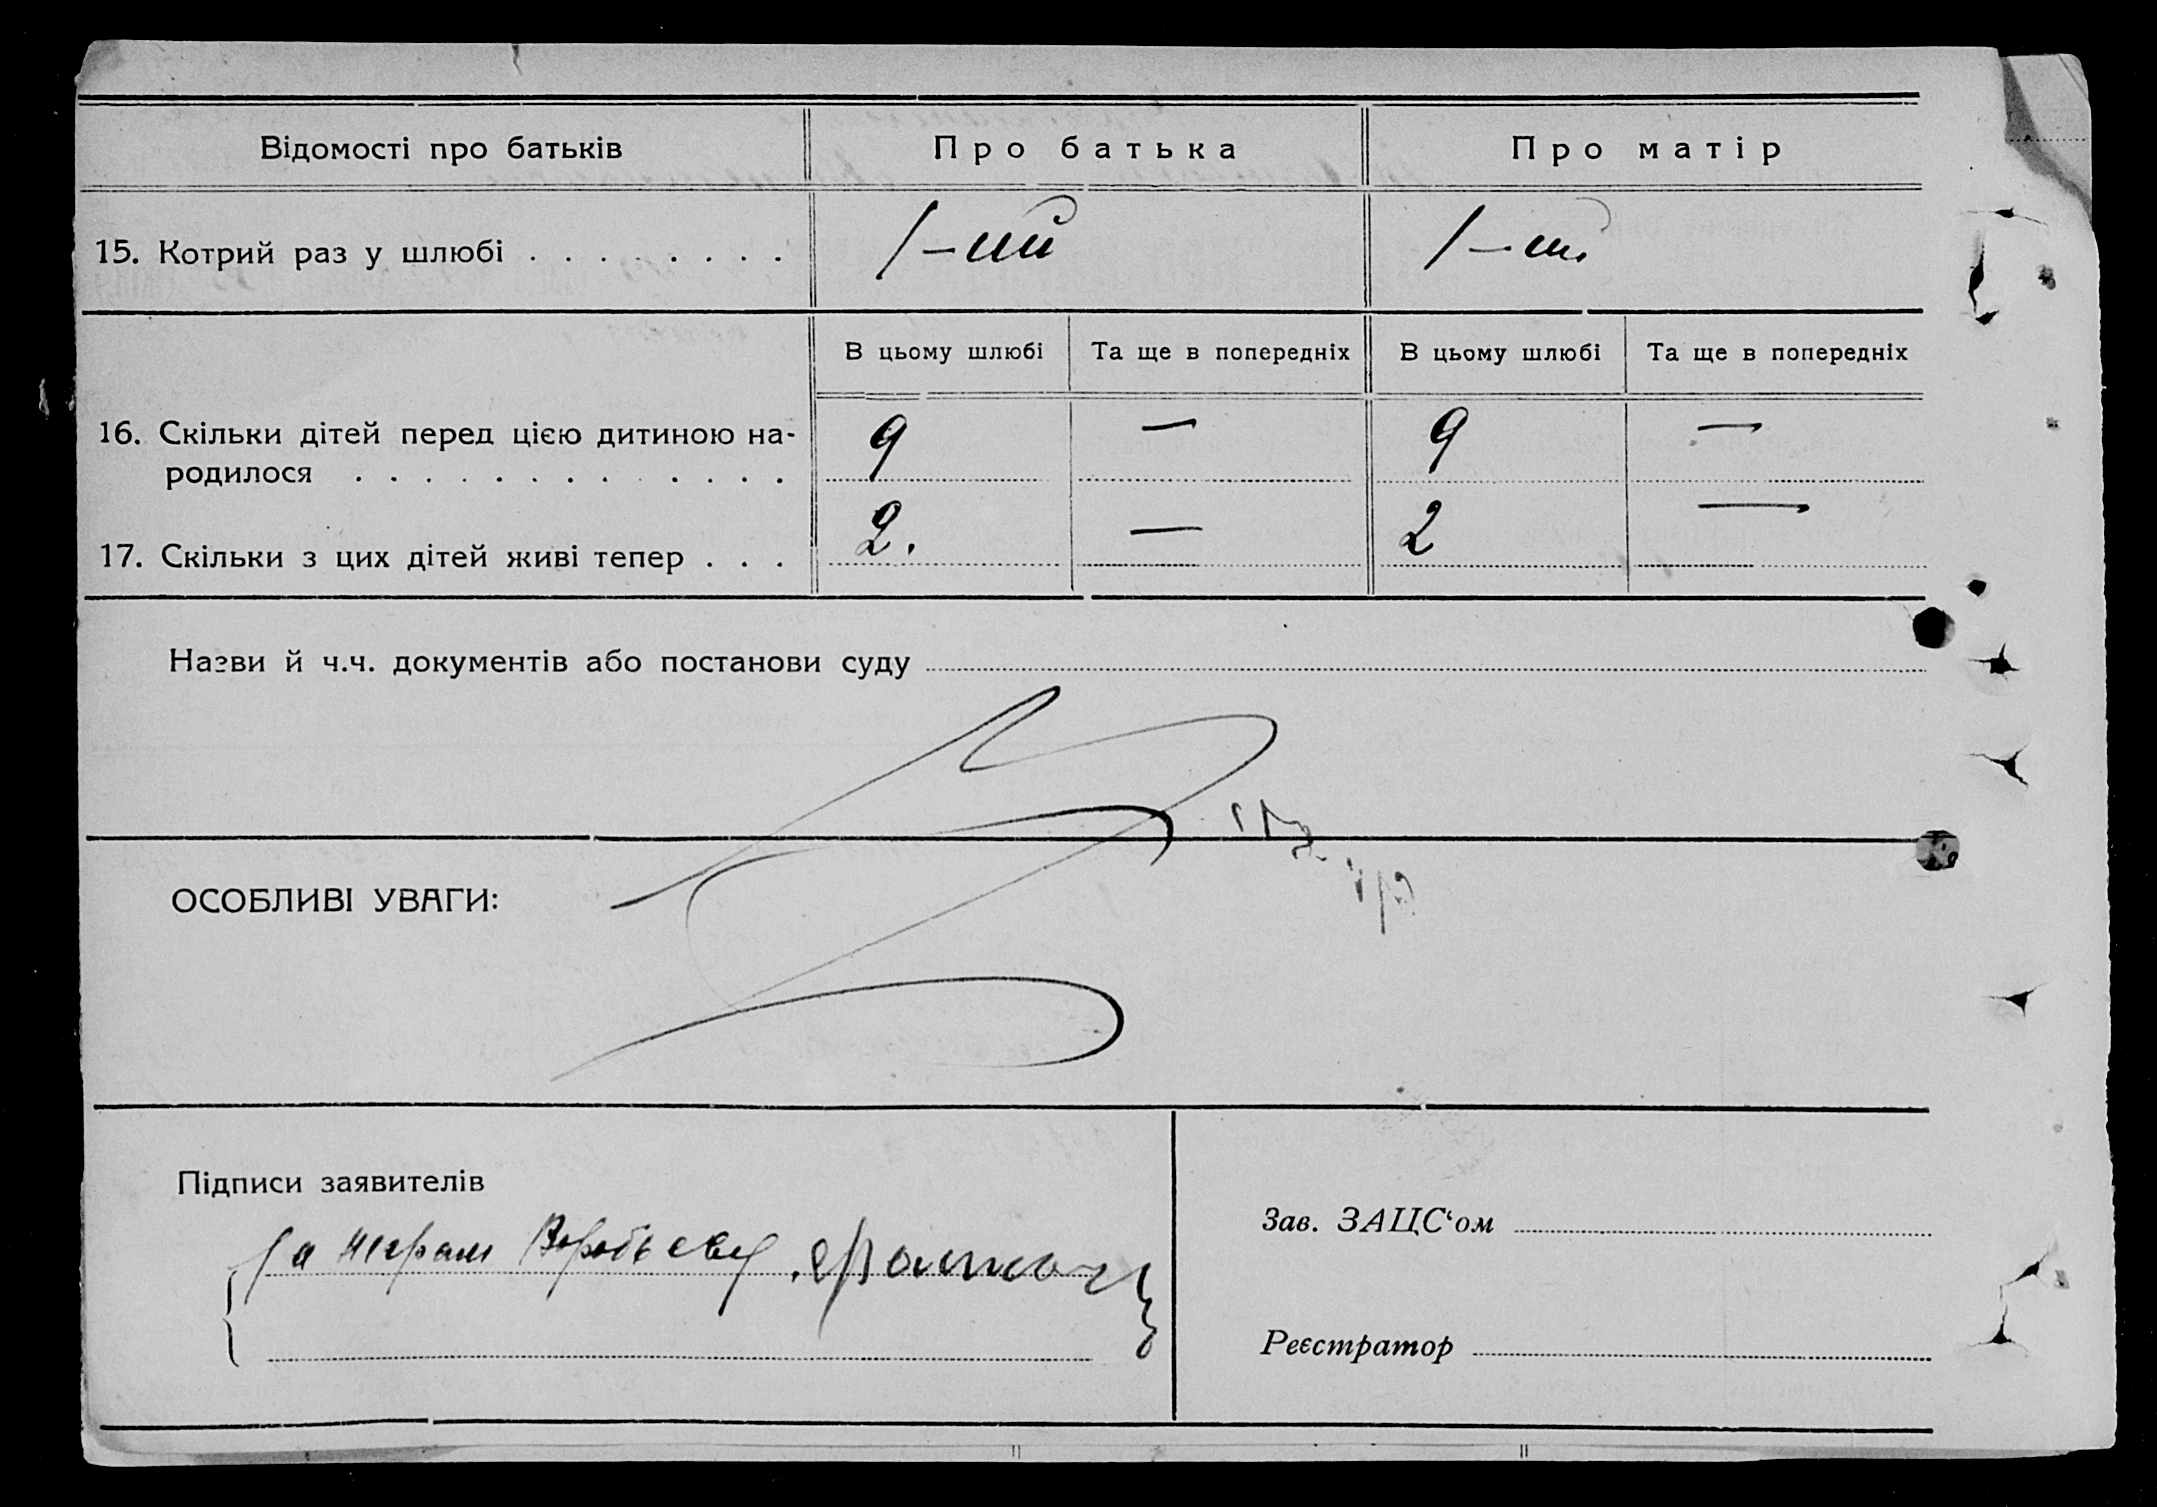 Відомості про батьків Про батька Про матір
15. Котрий раз у шлюбі . . . . . . . . 1-ий 1-ий
В цьому шлюбі Та ще в попередніх В цьому шлюбі Та ще в попередніх
16. Скільки дітей перед цією дитиною на-
родилося . . . . . . . . . . . . . 9 — 9 —
17. Скільки з цих дітей живі тепер . . . 2. — 2 —
Назви й ч.ч. документів або постанови суду
ОСОБЛИВІ УВАГИ:
Підписи заявителів
за неграм
Зав. ЗАЦС‘ом
Реєстратор